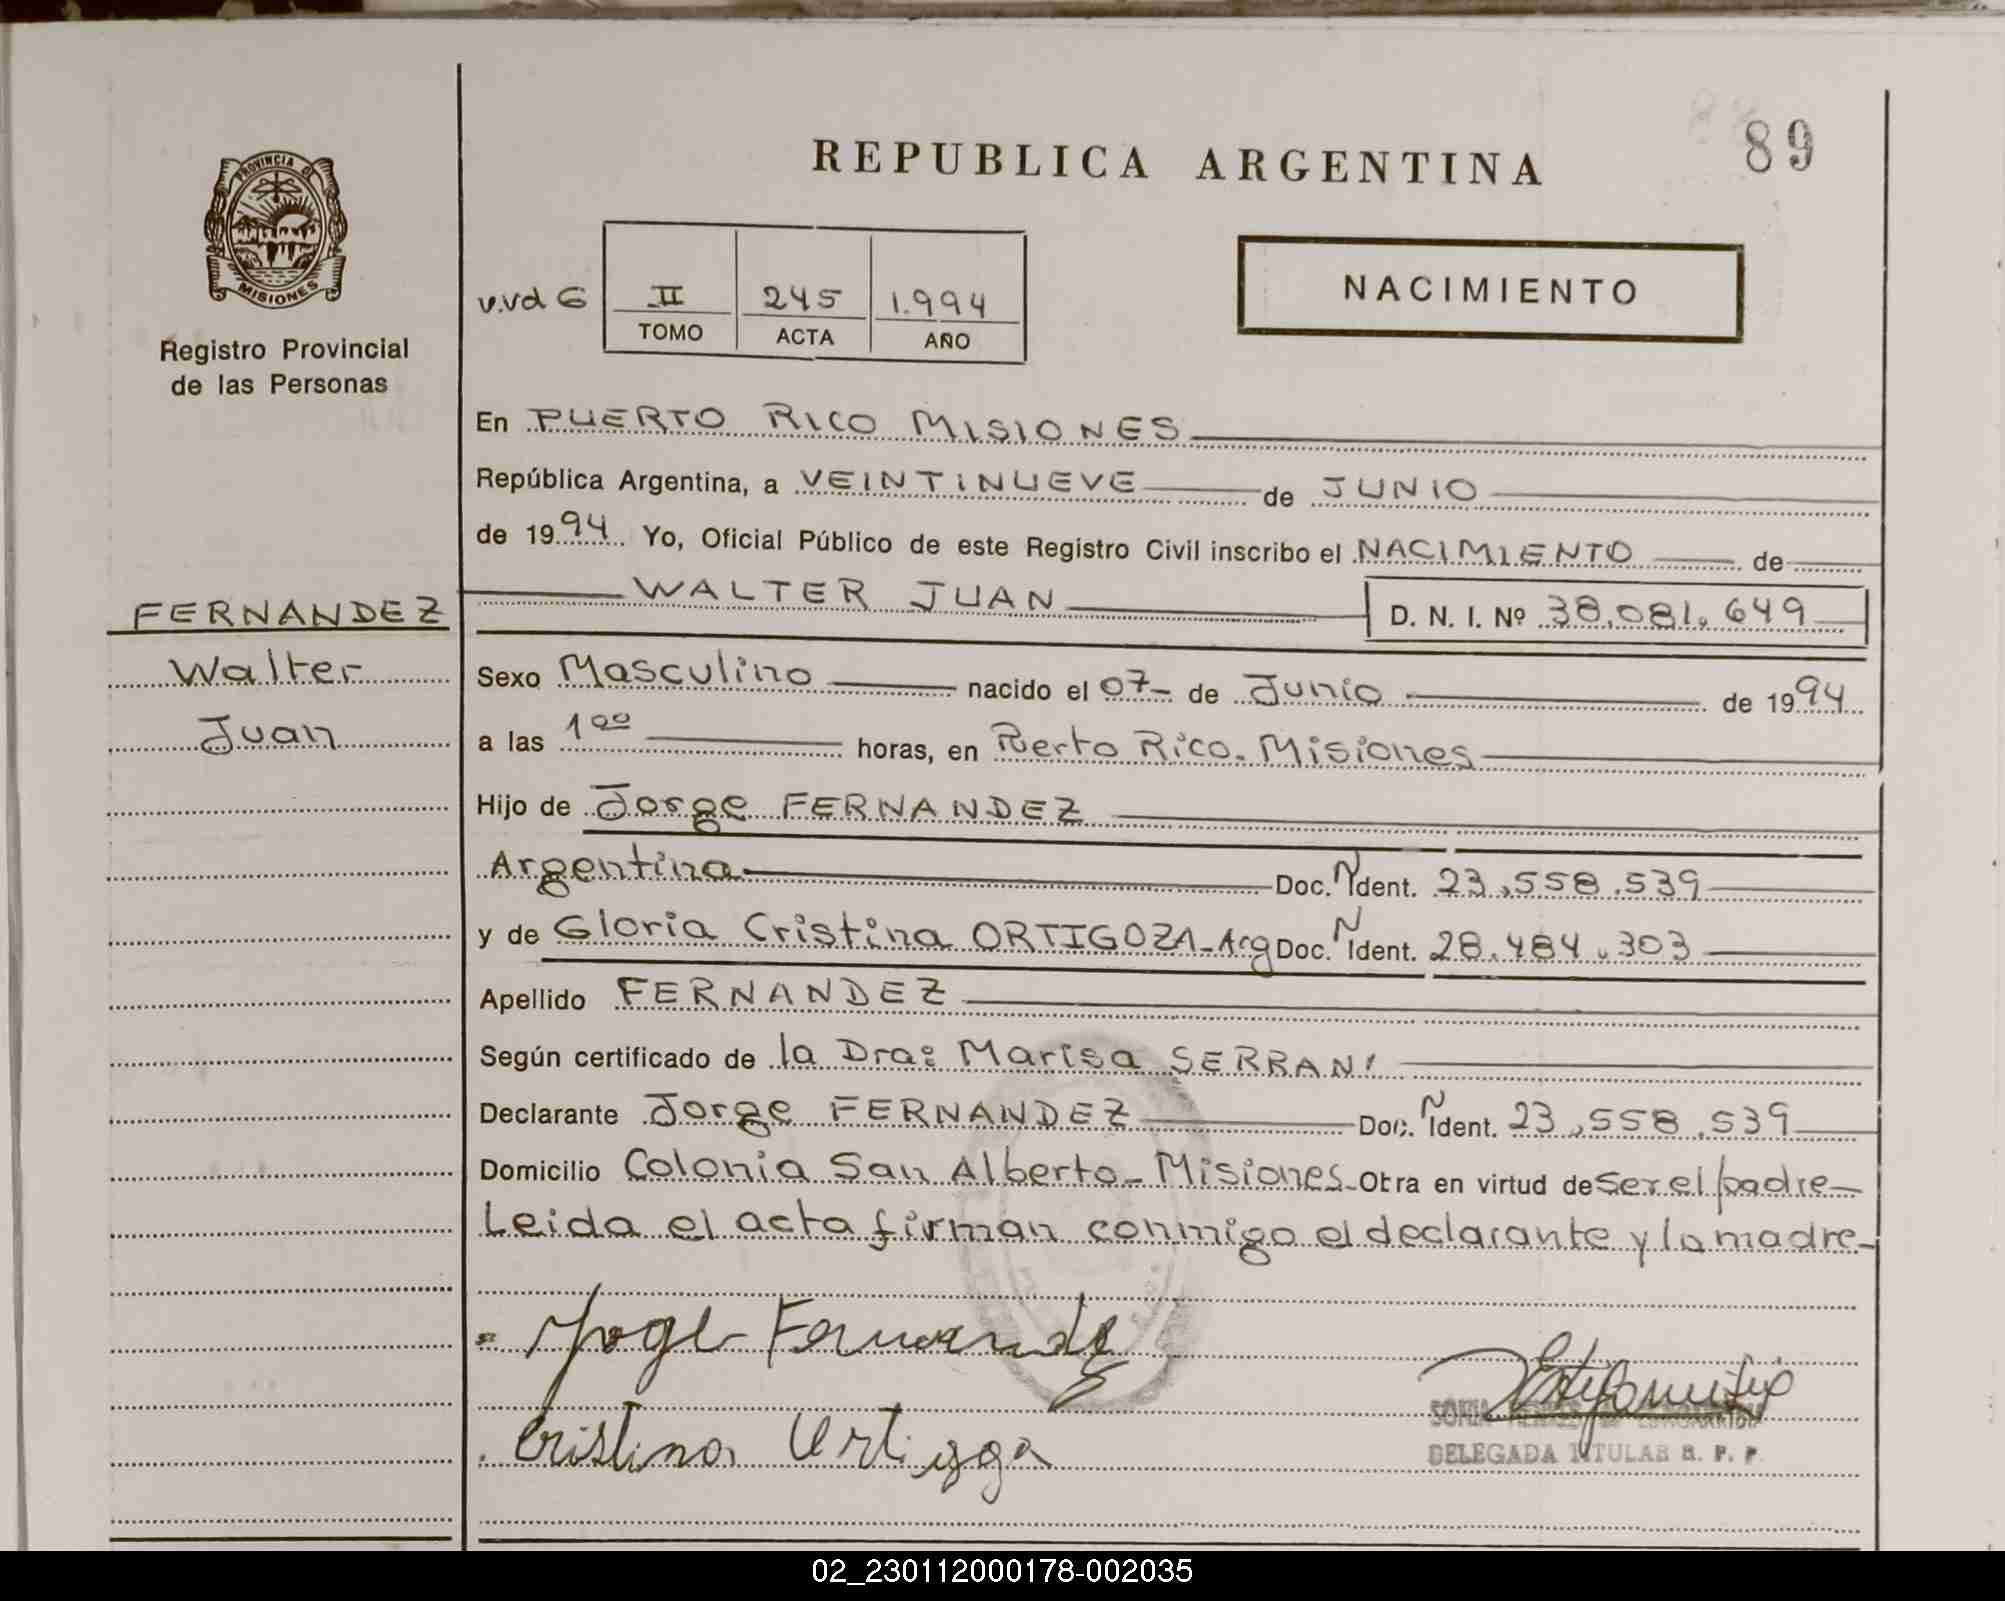 PROVINCIA DE
MISIONES
Registro Provincial
de las Personas
REPUBLICA ARGENTINA
89
v.vd G
II 245 1.994
TOMO ACTA AÑO
NACIMIENTO
En PUERTO RICO MISIONES
República Argentina, a VEINTINUEVE de JUNIO
de 1994 Yo, Oficial Público de este Registro Civil inscribo el NACIMIENTO de
WALTER JUAN D. N. I. Nº 38.081.649
FERNANDEZ
Walter
Juan
Sexo Masculino nacido el 07- de Junio de 1994
a las 1 00 horas, en Puerto Rico. Misiones
Hijo de Jorge FERNANDEZ
Argentina Doc. N Ident. 23.558.539
y de Gloria Cristina ORTIGOZA-Arg Doc. N Ident. 28.484.303
Apellido FERNANDEZ
Según certificado de la Dra: Marisa SERRANI
Declarante Jorge FERNANDEZ Doc. N Ident. 23.558.539
Domicilio Colonia San Alberto-Misiones-Obra en virtud de Ser el padre-
Leida el acta firman conmigo el declarante y la madre-
Jorge Fernandez
Cristina Ortigoza
SONIA
DELEGADA TITULAR R. P. P.
02_230112000178-002035